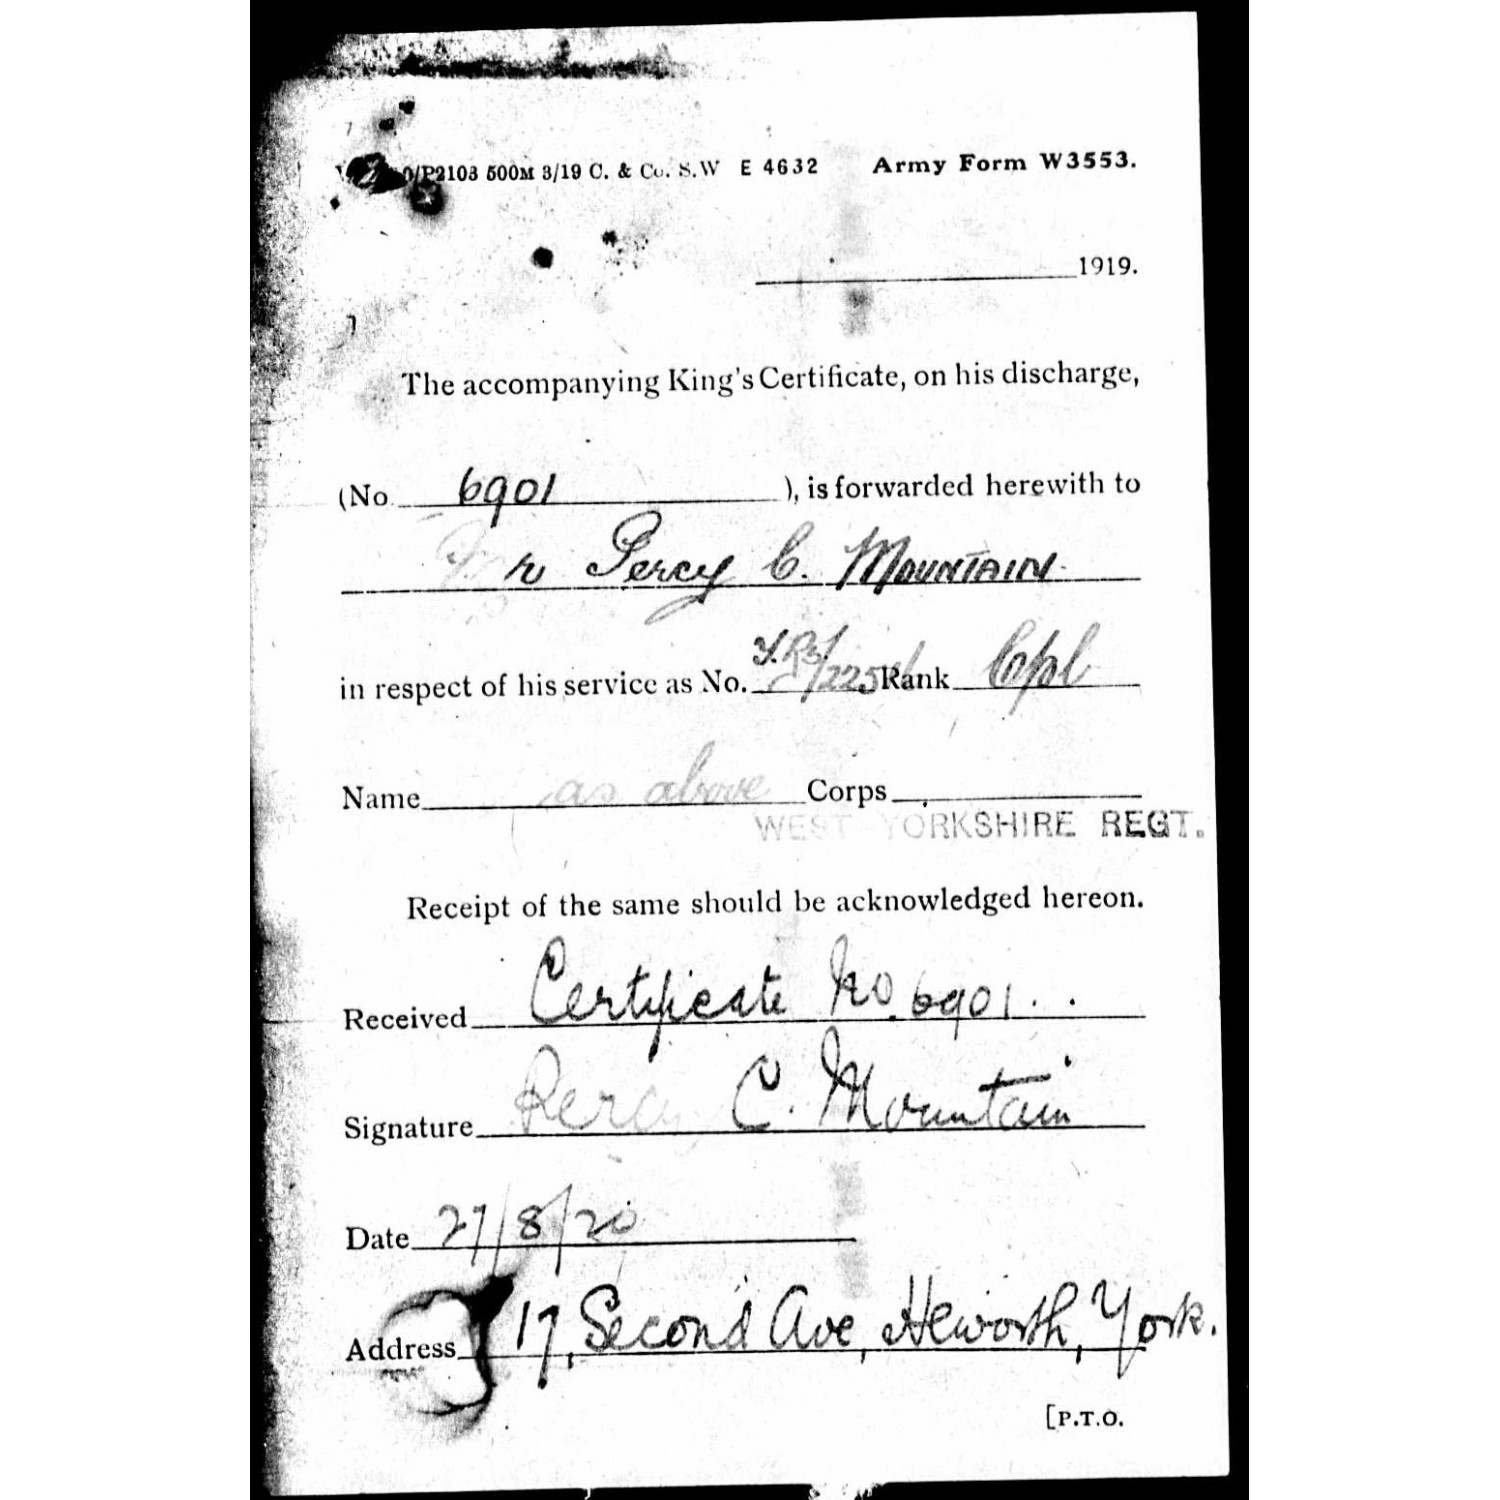 /P2103 500M 3/19 C. & Co. S.W E 4632 Army Form W3553.
1919.
The accompanying King's Certificate, on his discharge,
(No. 6901 ), is forwarded herewith to
Mr Percy C. MOUNTAIN
in respect of his service as No. Rank Cpl
Name as above Corps
WEST YORKSHIRE REGT.
Receipt of the same should be acknowledged hereon.
Received Certificate No. 6901.
Signature Percy C. Mountain
Date 27/8/20
Address 17, Second Ave, Heworth, York.
[P.T.O.